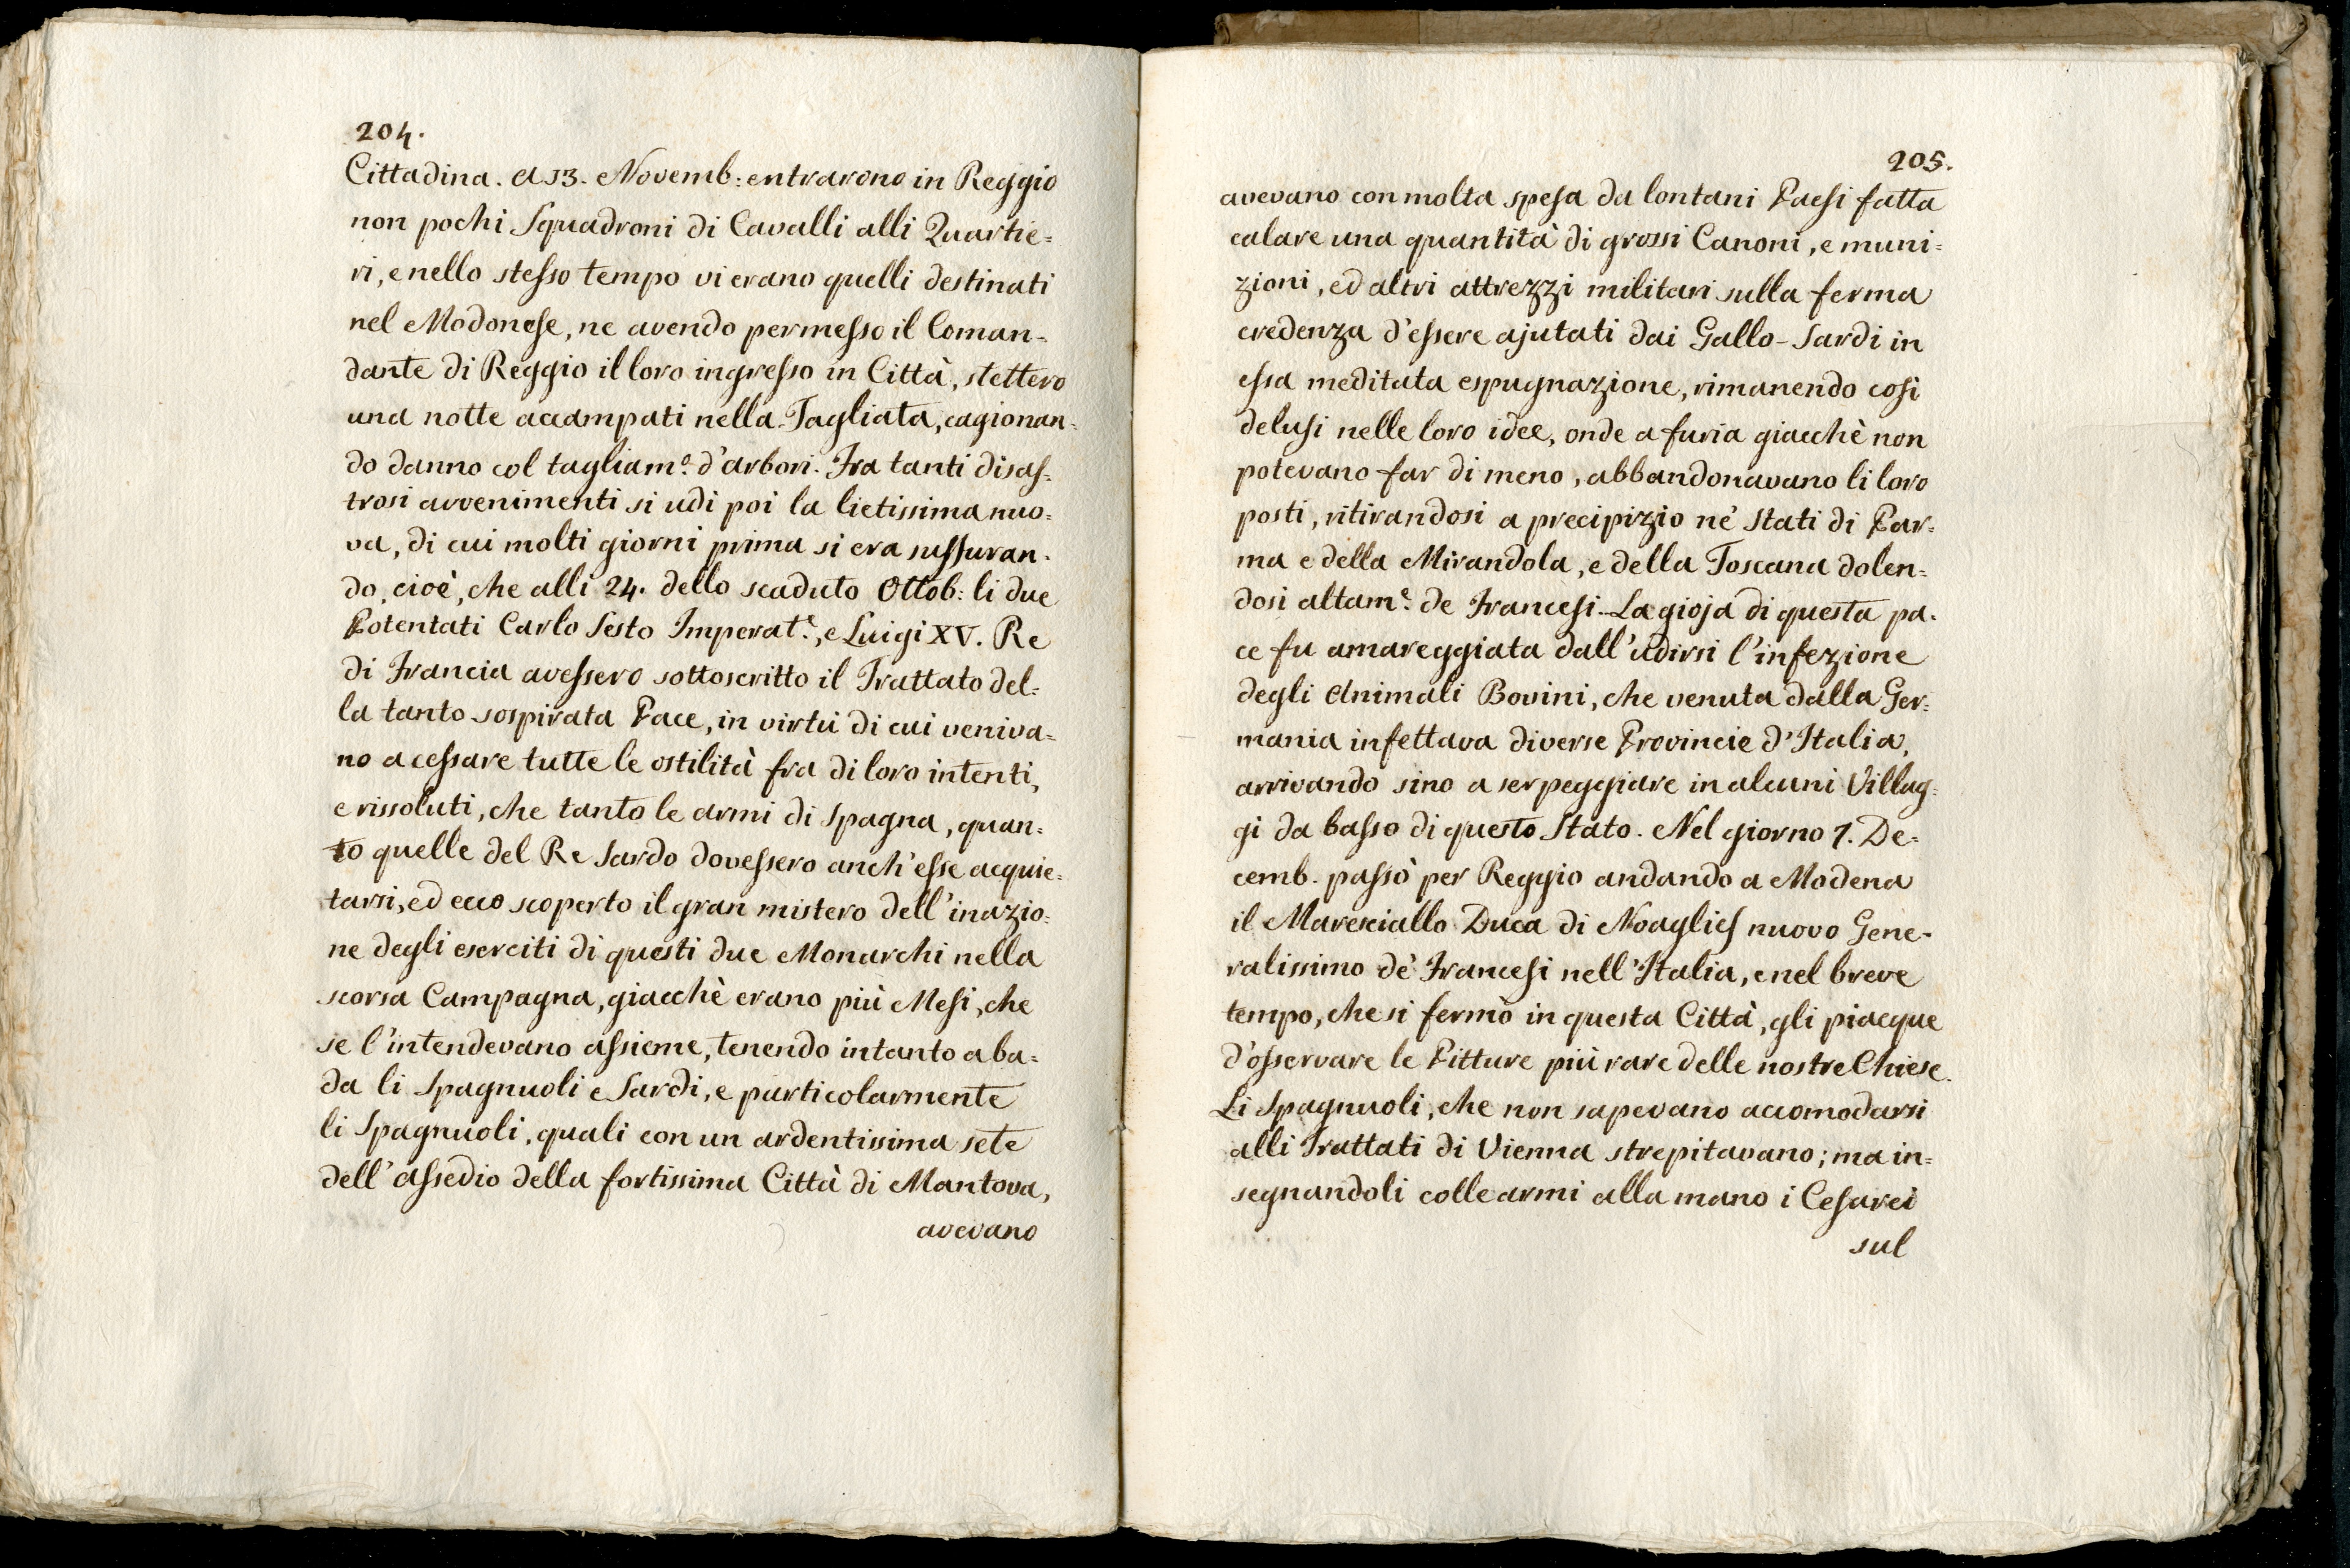 204.
Cittadina. A 13. Novemb: entrarono in Reggio
non pochi Squadroni di Cavalli alli Quartie=
ri, e nello stesso tempo vi erano quelli destinati
nel Modonese, ne avendo permesso il Coman=
dante di Reggio il loro ingresso in Città, stettero
una notte accampati nella Tagliata, cagionan=
do danno col tagliam.º d'arbori. Fra tanti disas=
trosi avvenimenti si udi poi la lietissima nuo=
va, di cui molti giorni prima si era sussuran=
do, cioè, che alli 24. dello scaduto Ottob: li due
Potentati Carlo Sesto Imperat.e, e Luigi XV. Re
di Francia avessero sottoscritto il Trattato del=
la tanto sospirata Pace, in virtù di cui veniva=
no a cessare tutte le ostilità fra di loro intenti,
e rissoluti, che tanto le armi di Spagna, quan=
to quelle del Re Sardo dovessero anch'esse acquie=
tarsi, ed ecco scoperto il gran mistero dell'inazio=
ne degli eserciti di questi due Monarchi nella
scorsa Campagna, giacchè erano più Mesi, che
se l'intendevano assieme, tenendo intanto a ba=
da li Spagnuoli e Sardi, e particolarmente
li Spagnuoli, quali con un ardentissima sete
dell'assedio della fortissima Città di Mantova,
avevano
205.
avevano con molta spesa da lontani Paesi fatta
calare una quantità di grossi Canoni, e muni=
zioni, ed altri attrezzi militari sulla ferma
credenza d'essere ajutati dai Gallo-Sardi in
essa meditata espugnazione, rimanendo cosi
delusi nelle loro idee, onde a furia giacchè non
potevano far di meno, abbandonavano li loro
posti, ritirandosi a precipizio ne' Stati di Par=
ma e della Mirandola, e della Toscana dolen=
dosi altam.e de Francesi. La gioja di questa pa=
ce fu amareggiata dall'udirsi l'infezione
degli Animali Bovini, che venuta dalla Ger=
mania infettava diverse Provincie d'Italia,
arrivando sino a serpeggiare in alcuni Villag=
gi da basso di questo Stato. Nel giorno 7. De=
cemb. passò per Reggio andando a Modena
il Maresciallo Duca di Noaglies nuovo Gene=
ralissimo de' Francesi nell'Italia, e nel breve
tempo, che si fermò in questa Città, gli piacque
d'osservare le Pitture più rare delle nostre Chiese.
Li Spagnuoli, che non sapevano accomodarsi
alli Trattati di Vienna strepitavano; ma in=
segnandoli colle armi alla mano i Cesarei
sul